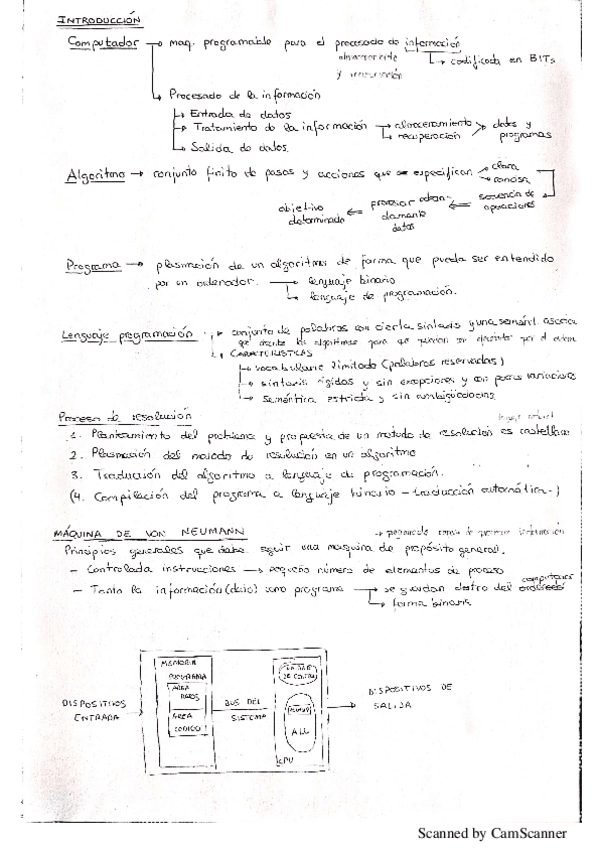 INTRODUCCIÓN
Computador → maq. programable para el procesado de información
almacenamiento → codificada en BITs
y recuperación
→ Procesado de la información
→ Entrada de datos
→ Tratamiento de la información → almacenamiento → datos y
→ recuperación programas
→ Salida de datos.
Algoritmo → conjunto finito de pasos y acciones que se especifican clara
concisa
objetivo ⇐ procesar adecua- ⇐ secuencia de
determinado damente operaciones
datos
Programa → plasmación de un algoritmo de forma que pueda ser entendido
por un ordenador. → lenguaje binario
→ lenguaje de programación.
Lenguaje programación → conjunto de palabras con cierta sintaxis y una semánt. asocia
que los algoritmos para que puedan ser por el
CARACTERISTICAS
→ vocabulario limitado (palabras reservadas)
→ sintaxis rígidas y sin excepciones y con pocas variaciones
→ Semántica estricta y sin ambigüedades
Proceso de resolución
1. Planteamiento del problema y propuesta de un metodo de resolución
2. Plasmación del metodo de resolución en un algoritmo
3. Traducción del algoritmo a lenguaje de programación.
(4. Compilación del programa a lenguaje binario - traducción automática.)
MÁQUINA DE VON NEUMANN
Principios generales que debe seguir una maquina de propósito general.
- Controlada instrucciones → pequeño número de elementos de proceso
computador
- Tanto la información (dato) como programa → se guardan dentro del
→ forma binaria
MEMORIA
PROGRAMA
AREA
DATOS
AREA
CODIGO
DISPOSITIVOS
ENTRADA
BUS DEL
SISTEMA
UNIDAD
DE CONTROL
ALU
CPU
DISPOSITIVOS DE
SALIDA
Scanned by CamScanner